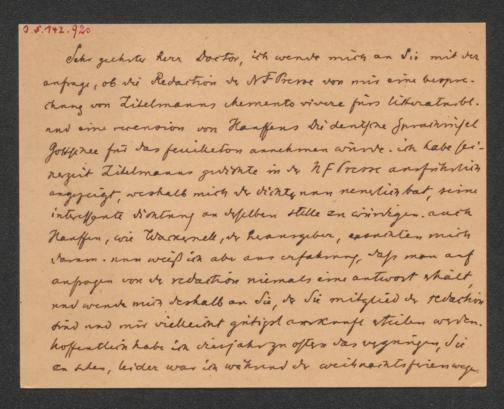 I.N.142.920
Sehr geehrter Herr Doctor, ich wende mich an Sie mit der
anfrage, ob die Redaction der NFPresse von mir eine bespre-
chung von Zitelmanns Memento vivere fürs litteraturbl.
und eine recension von Hauffens Die deutsche Sprachinsel
Gottschee für das feuilleton annehmen würde. ich habe sei-
nerzeit Zitelmanns gedichte in der NFPresse ausführlich
angezeigt, weshalb mich der dichter nun neulich bat, seine
interessante dichtung an derselben stelle zu würdigen. auch
Hauffen, wie Wackernell, der herausgeber, ersuchten mich
darum. nun weiß ich aber aus erfahrung, dass man auf
anfragen von der redaction niemals eine antwort erhält,
und wende mich deshalb an Sie, da Sie mitglied der redaction
sind und mir vielleicht gütigst auskunft erteilen werden.
hoffentlich habe ich dies jahr zu ostern das vergnügen, Sie
zu sehen, leider war ich während der weihnachtsferien wegen